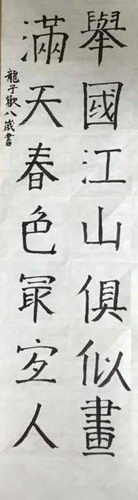 舉國江山俱似畫
滿天春色冣宐人
龍子歌八歲書